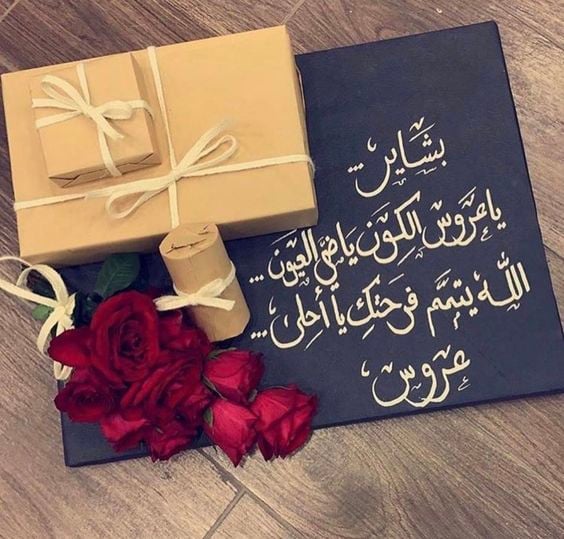 بشاير..
يا عروس الكون يا ضي العيون ...
الله يتمم فرحتك يا أحلى ...
عروس